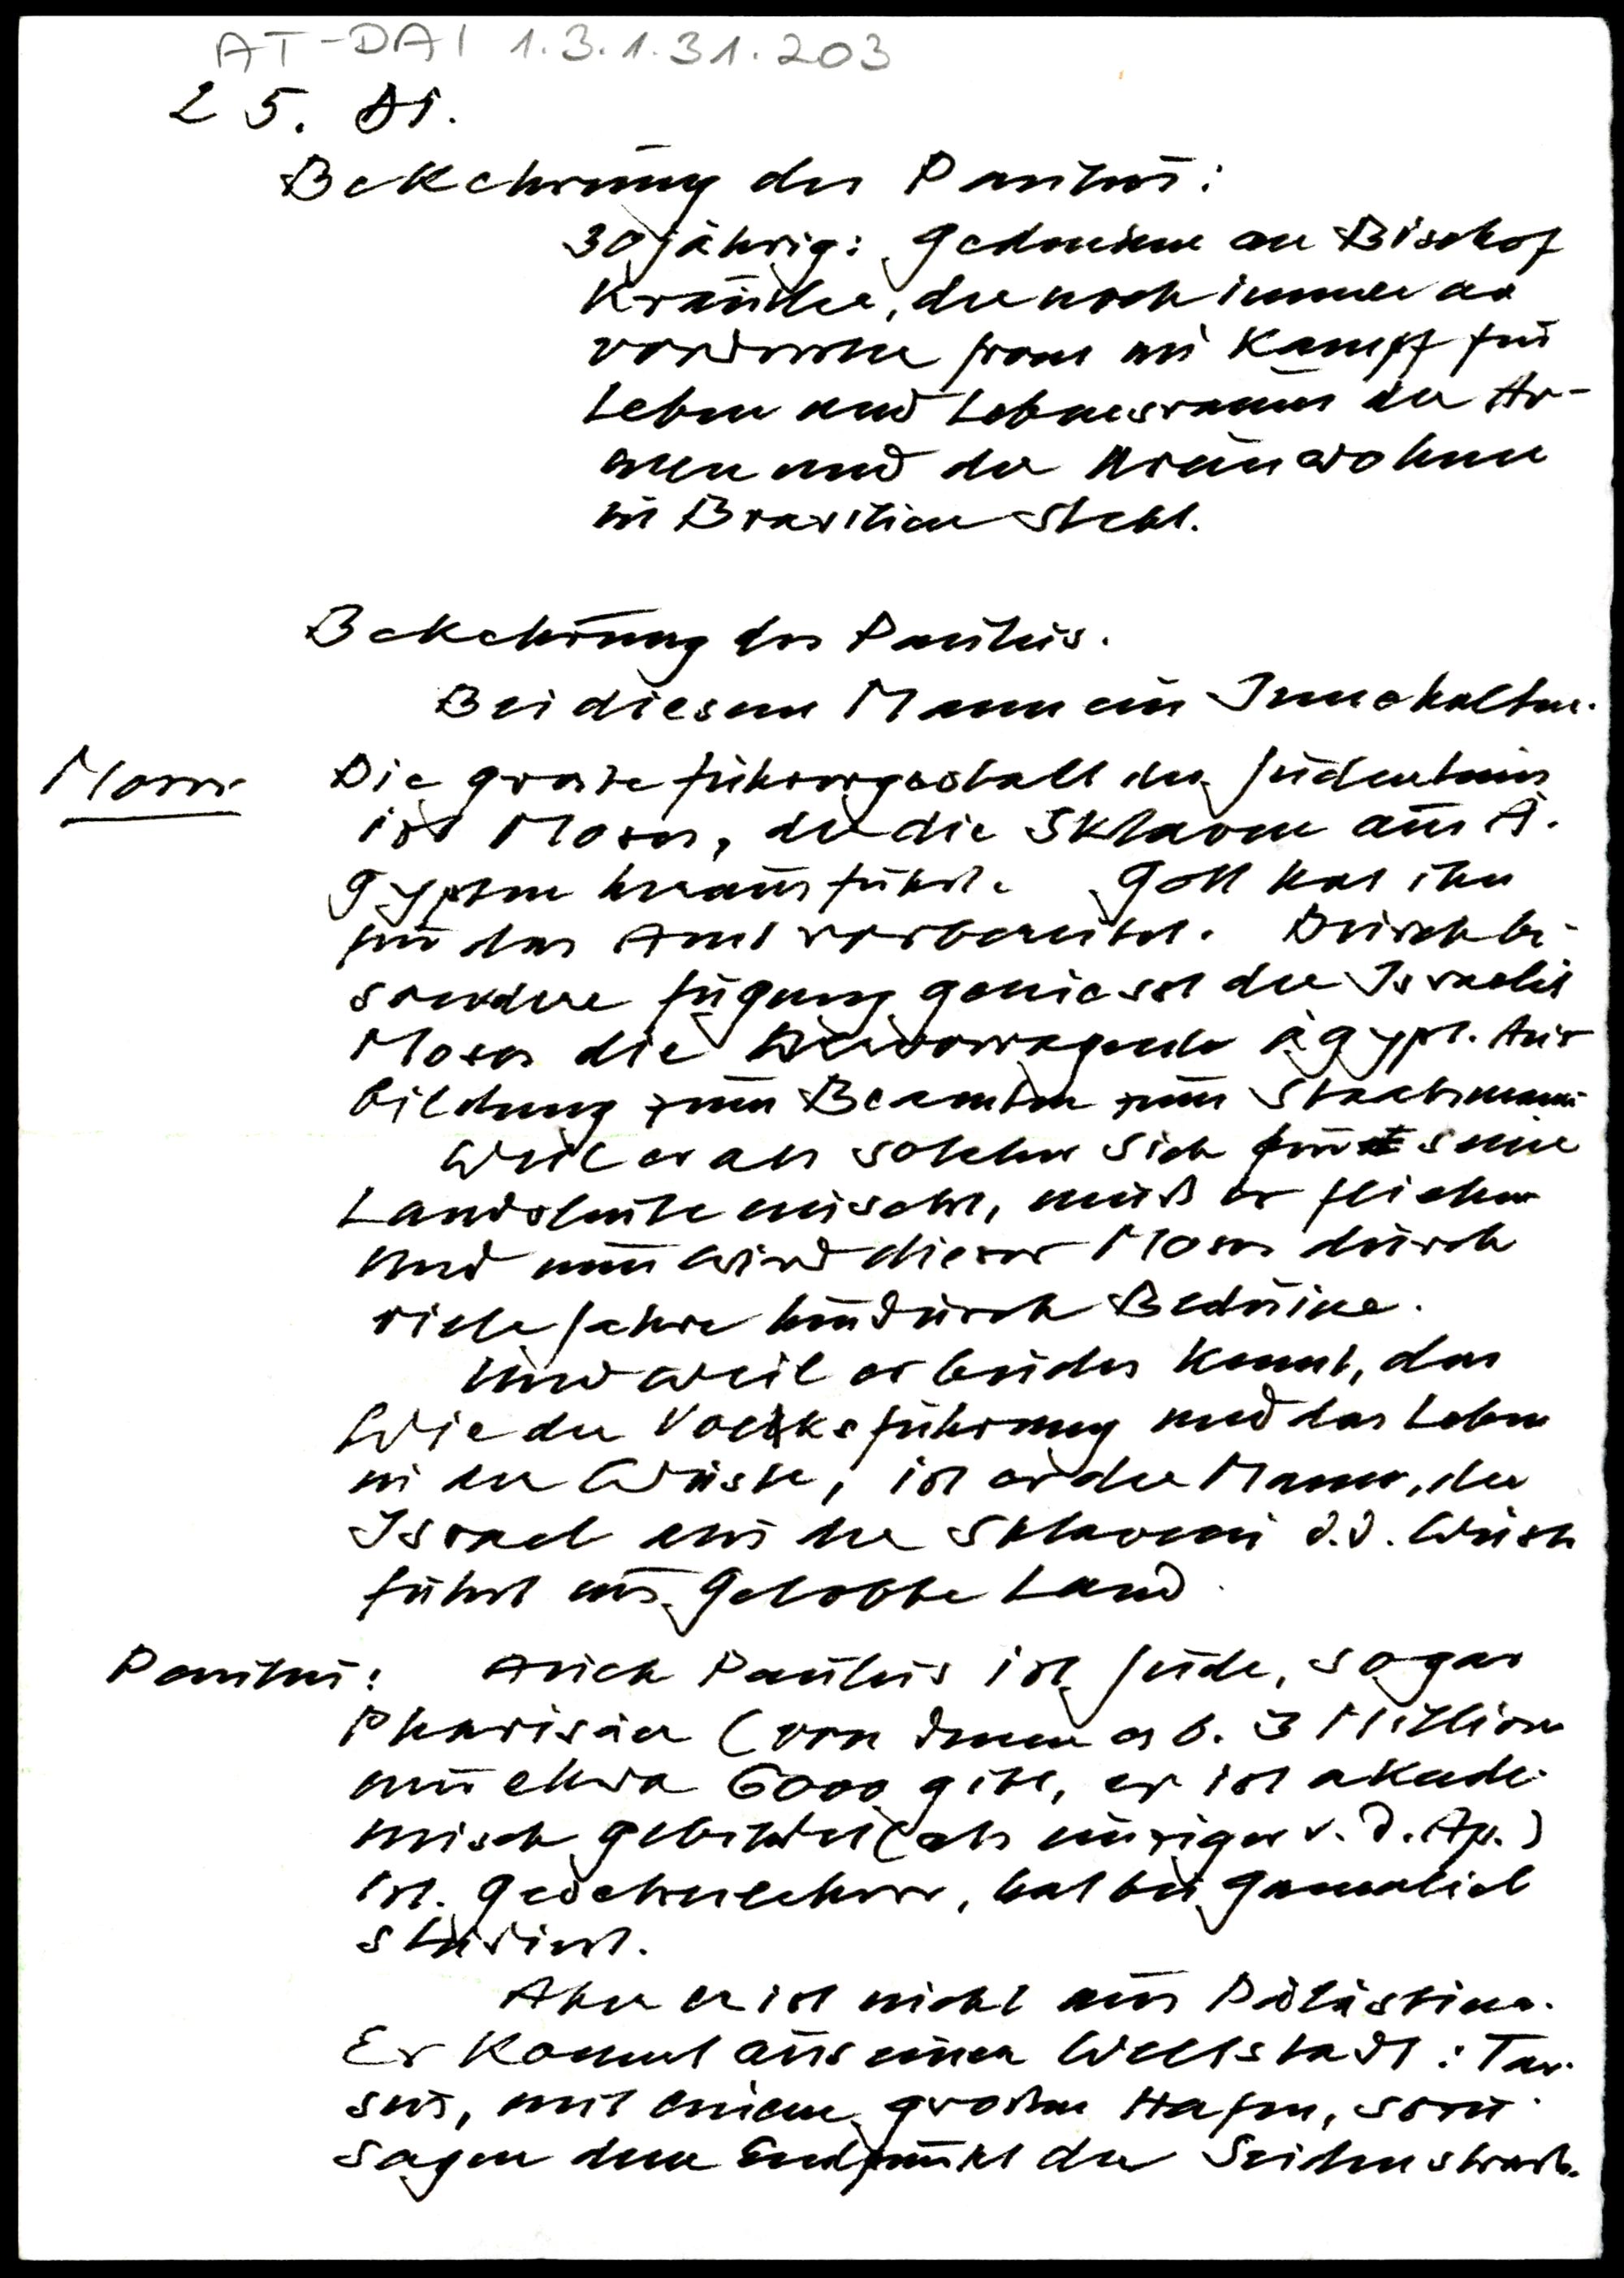 AT-DAI 1.3.1.31.203
25. A1.
Bekehrung des Paulus:
30jährig: Gedenken an Bischof
Kräutler, der noch immer an
vorderster Front im Kampf für
Leben und Lebensraum der Ar-
men und der Ureinwohner
in Brasilien steht.
Bekehrung des Paulus.
Bei diesem Mann ein Innehalten.
Moses
Die grosse Führergestalt des Judentums
ist Moses, der die Sklaven aus Ä-
gypten herausführt. Gott hat ihn
für das Amt vorbereitet. Durch be-
sondere Fügung geniesst der Israelit
Moses die hervorragende ägypt. Aus-
bildung zum Beamten zum Staatsmann
Weil er als solcher sich für seine
Landsleute einsetzt, muß er fliehen
und nun wird dieser Moses durch
viele Jahre hindurch Beduine.
Und weil er beides kennt, das
Wie der Volksführung und das Leben
in der Wüste, ist er der Mann, der
Israel aus der Sklaverei d.d. Wüste
führt ins Gelobte Land.
Paulus: Auch Paulus ist Jude, sogar
Pharisäer (von denen es b. 3 Millionen
nur etwa 6000 gibt, er ist akade-
misch gebildet (als einziger v. d. Ap.)
ist Gesetzeslehrer, hat bei Gamaliel
studiert.
Aber er ist nicht aus Palästina.
Er kommt aus einer Weltstadt: Tar-
sus, mit einem großen Hafen, sozu-
sagen dem Endpunkt der Seidenstraße.